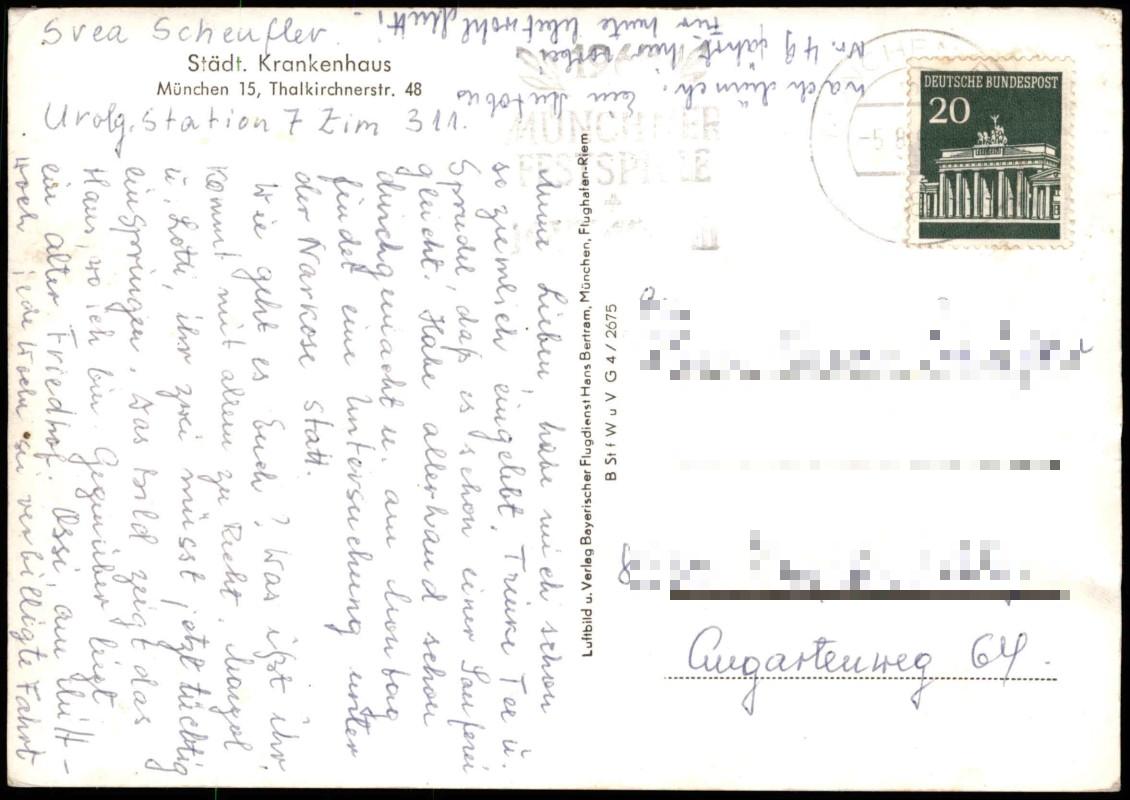 Svea Scheufler.
Städt. Krankenhaus
München 15, Thalkirchnerstr. 48
Urolg. Station 7 Zim 311.
Meine Lieben, habe mich schon
so ziemlich eingelebt. Trinke Tee u.
Sprudel, daß es schon einer Sauferei
gleicht. Habe allerhand schon
durchgemacht u. am Montag
findet eine Untersuchung unter
der Narkose statt.
Wie geht es Euch? Was ißt ihr
Kommt mit allem zu Recht. Margot
u. Lotti, ihr zwei müsst jetzt tüchtig
einspringen. Das Bild zeigt das
Haus, wo ich bin. Gegenüber liegt
ein alter Friedhof. Ossi, am Mitt-
woch jede Woche sei verbilligte Fahrt
nach München. Ein Autobus
Nr. 49 fährt hier vorbei
Für heute lebt wohl Mutti.
MÜNCHNER
FESTSPIELE
-5.8
DEUTSCHE BUNDESPOST
20
Luftbild u. Verlag Bayerischer Flugdienst Hans Bertram, München, Flughafen-Riem
B St f W u V G 4 / 2675
Augartenweg 64.